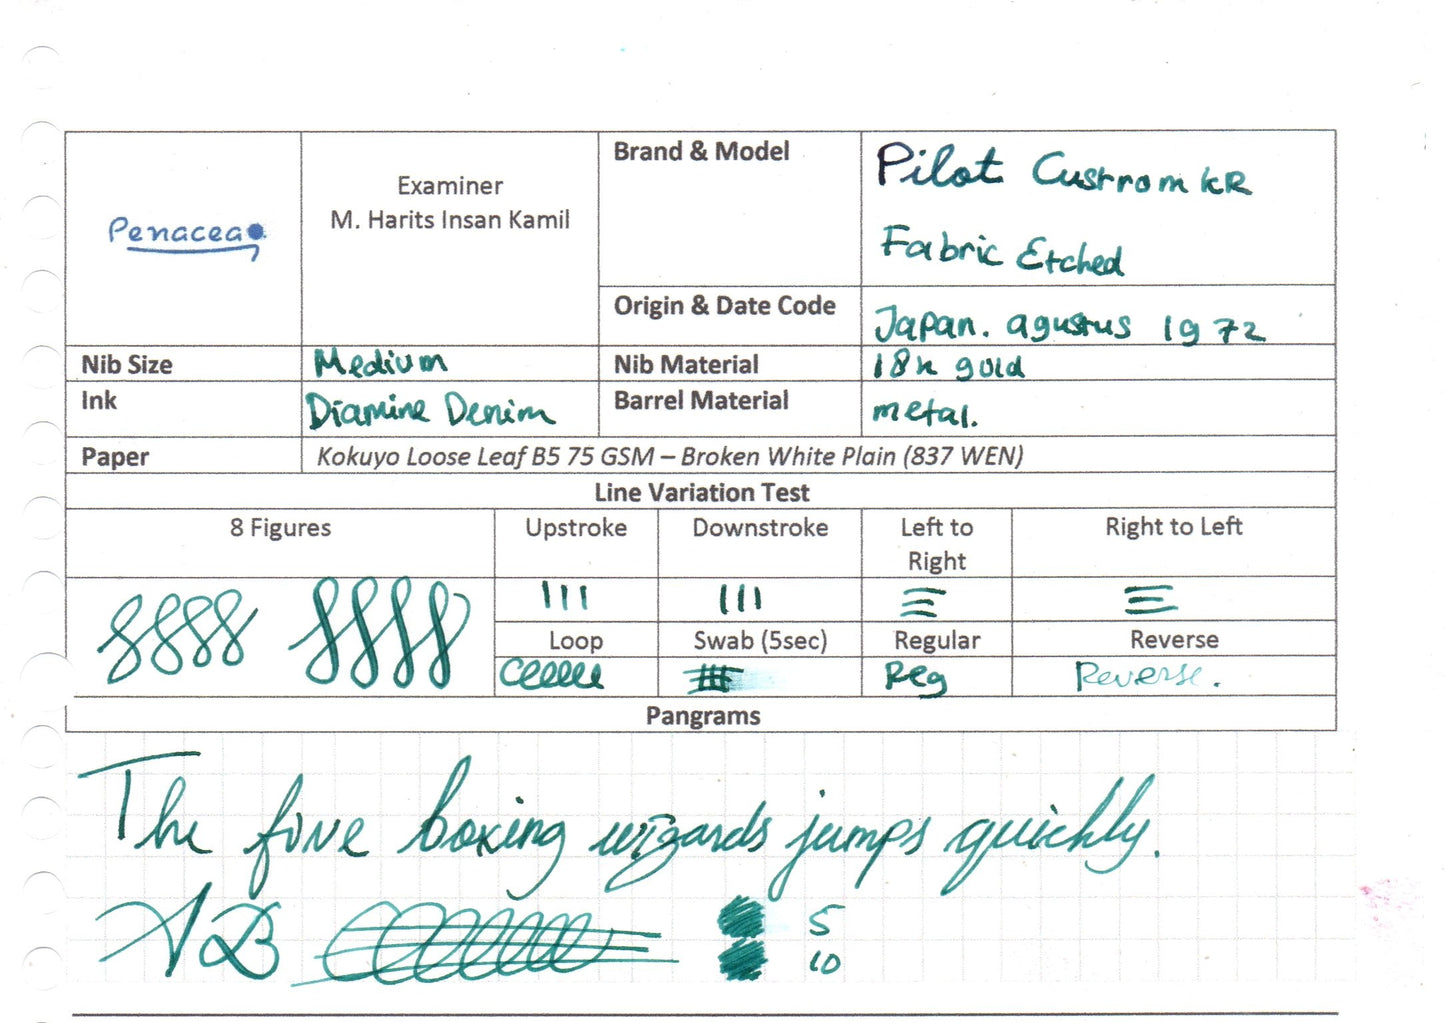 Penacea
Examiner
M. Harits Insan Kamil
Brand & Model
Pilot Custrom KR
Fabric Etched
Origin & Date Code
Japan. agustus 1972
Nib Size
Medium
Nib Material
18k gold
Ink
Diamine Denim
Barrel Material
metal.
Paper
Kokuyo Loose Leaf B5 75 GSM – Broken White Plain (837 WEN)
Line Variation Test
8 Figures
Upstroke
Downstroke
Left to
Right
Right to Left
Loop
Swab (5sec)
Regular
Reverse
Reg
Reverse.
Pangrams
The five boxing wizards jumps quickly.
AB
5
10